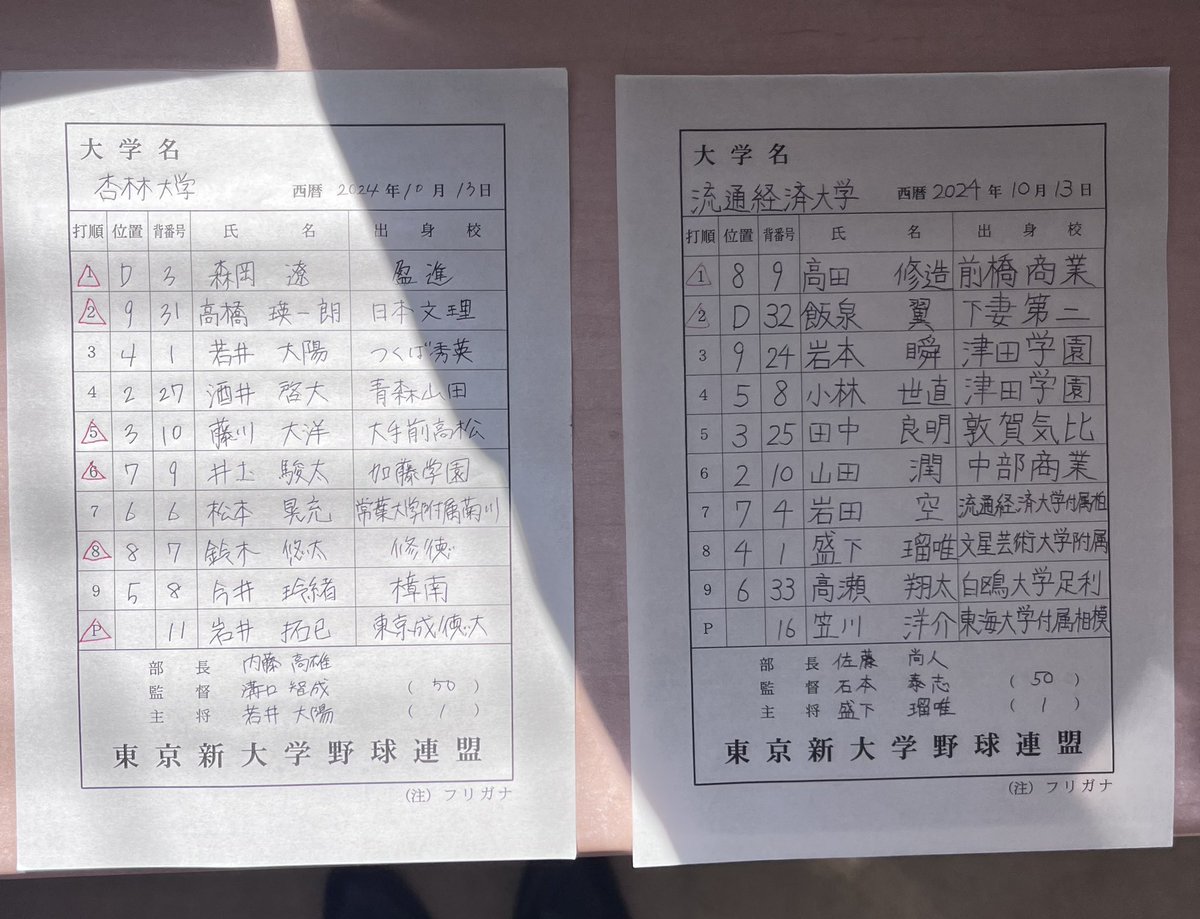 大学名
杏林大学 西暦 2024年10月13日
打順 位置 背番号 氏名 出身校
1 D 3 森岡 遼 盈進
2 9 31 高橋 瑛一朗 日本文理
3 4 1 若井 大陽 つくば秀英
4 2 27 酒井 啓大 青森山田
5 3 10 藤川 大洋 大手前高松
6 7 9 井土 駿太 加藤学園
7 6 6 松本 晃充 常葉大学附属菊川
8 8 7 鈴木 悠太 修徳
9 5 8 今井 玲緒 樟南
P 11 岩井 拓巳 東京成徳大
部長 内藤 高雄
監督 溝口 智成 (50)
主将 若井 大陽 (1)
東京新大学野球連盟
(注)フリガナ
大学名
流通経済大学 西暦 2024年10月13日
打順 位置 背番号 氏名 出身校
1 8 9 高田 修造 前橋商業
2 D 32 飯泉 翼 下妻第二
3 9 24 岩本 瞬 津田学園
4 5 8 小林 世直 津田学園
5 3 25 田中 良明 敦賀気比
6 2 10 山田 潤 中部商業
7 7 4 岩田 空 流通経済大学付属柏
8 4 1 盛下 瑠唯 文星芸術大学附属
9 6 33 高瀬 翔太 白鴎大学足利
P 16 笠川 洋介 東海大学付属相模
部長 佐藤 尚人
監督 石本 泰志 (50)
主将 盛下 瑠唯 (1)
東京新大学野球連盟
(注)フリガナ